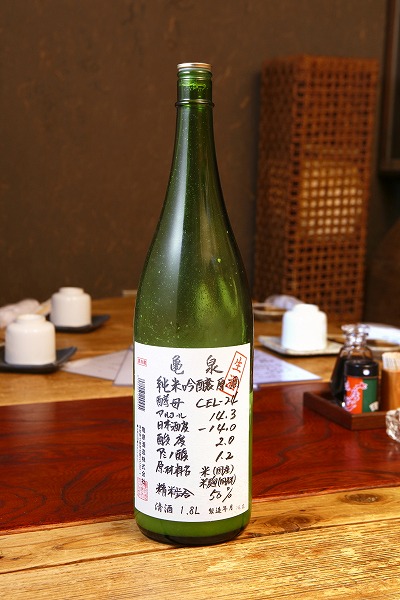 亀泉
生酒
純米吟醸原酒
酵母 CEL-24
アルコール 14.3
日本酒度 -14.0
酸度 2.0
アミノ酸 1.2
原材料名 米(国産)
米麹(国産米)
精米歩合 50%
清酒 1.8L 製造年月
亀泉酒造株式会社